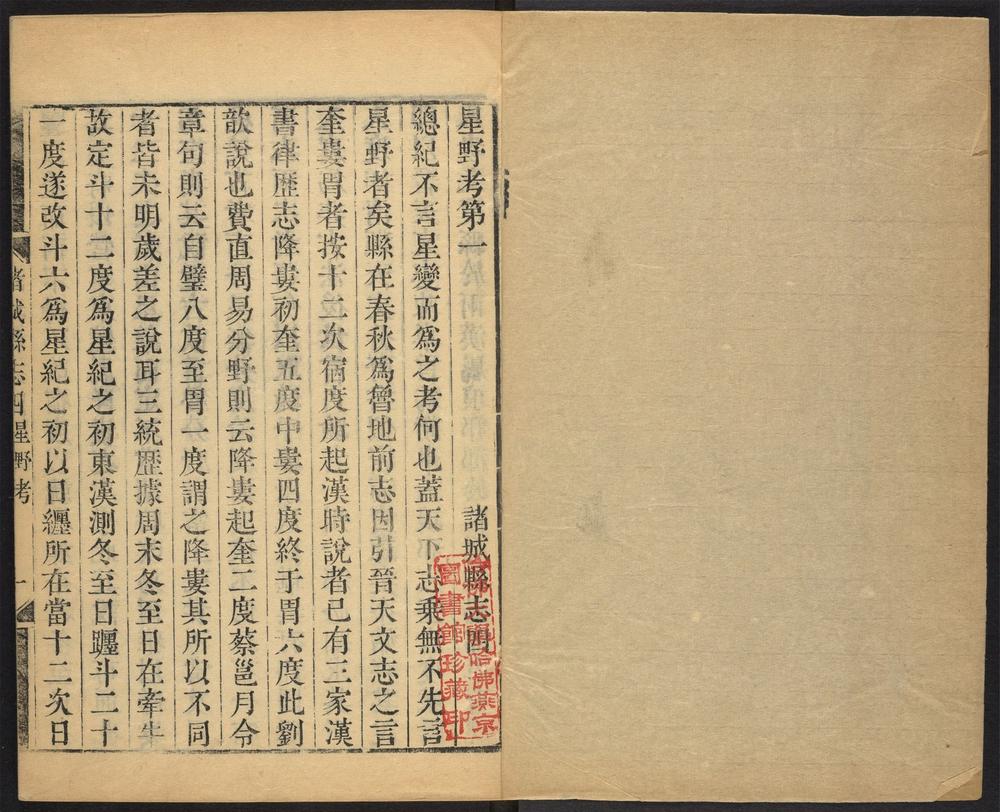 星野考第一　諸城縣志四
總紀不言星變而爲之考何也蓋天下志乘無不先言
星野者矣縣在春秋爲魯地前志因引晉天文志之言
奎婁胃者按十二次宿度所起漢時說者已有三家漢
書律歷志降婁初奎五度中婁四度終于胃六度此劉
歆說也費直周易分野則云降婁起奎二度蔡邕月令
章句則云自璧八度至胃一度謂之降婁其所以不同
者皆未明歲差之說耳三統歷據周末冬至日在牽牛
故定斗十二度爲星紀之初東漢測冬至日躔斗二十
一度遂改斗六爲星紀之初以日纏所在當十二次日
諸城縣志四星野考　一
哈佛大學哈佛燕京
圖書館珍藏印